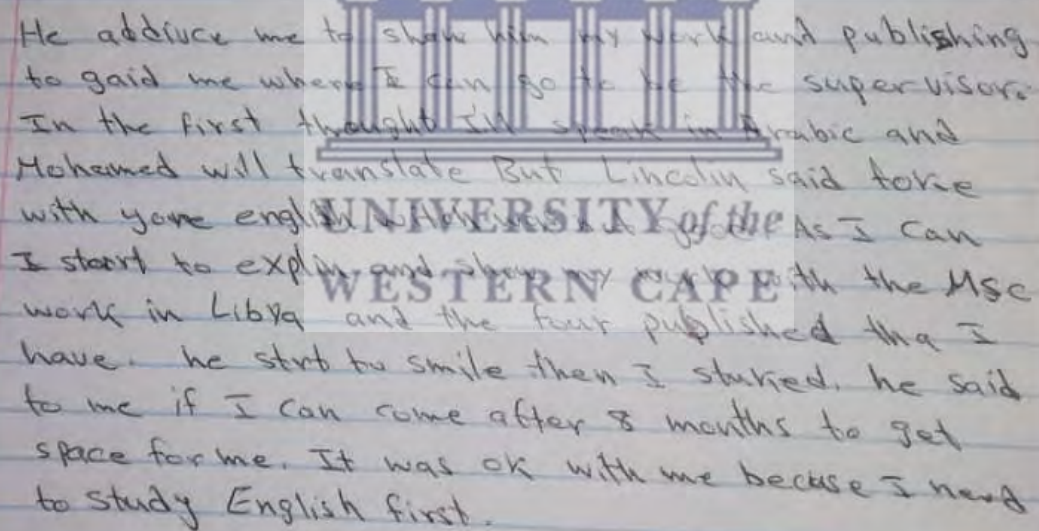 He adDiuce me to show him my work and publishing
to gaid me where I can go to be the supervisor.
In the first thought I'll speak in Arabic and
Mohamed will translate But Lincolin said
with yore english As I can
UNIVERSITY of the
I start to explin and show my work with the Msc
WESTERN CAPE
work in Libya and the four published tha I
have. he strt to smile then I he said
to me if I can come after 8 months to get
space for me. It was ok with me becuse I need
to study English first.